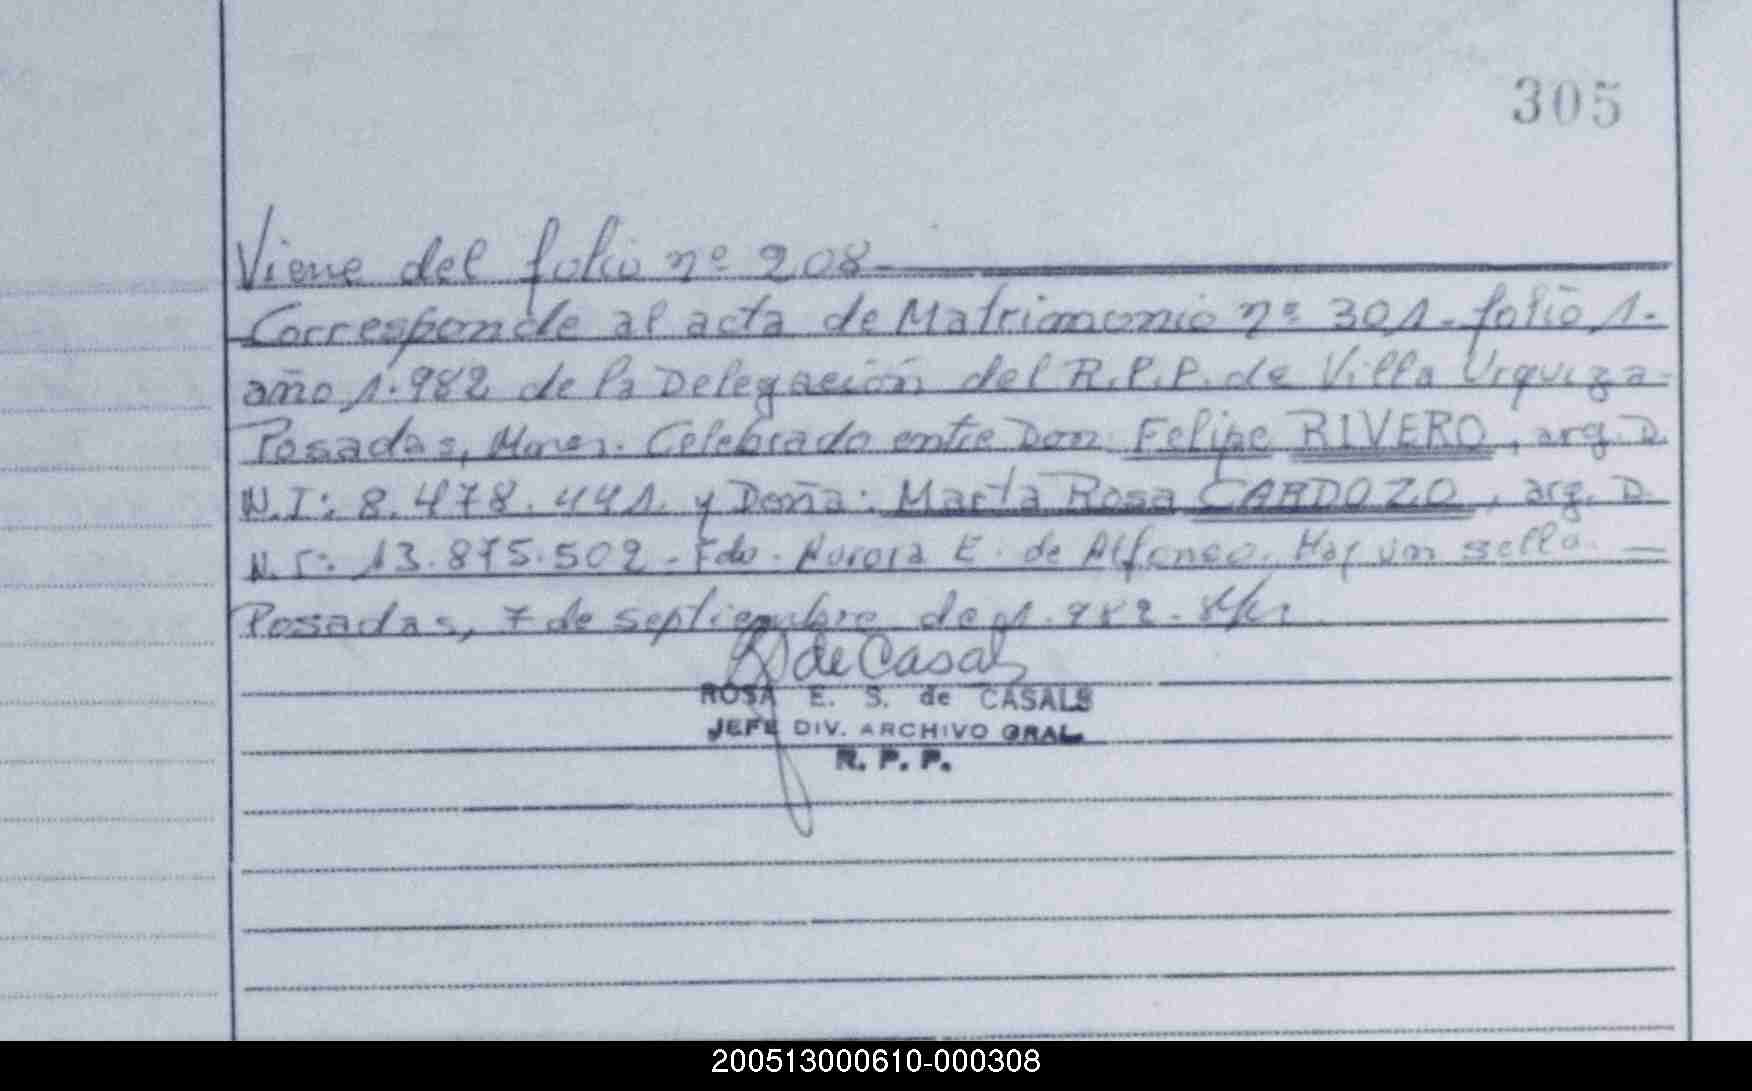 305
Viene del folio nº 208-
Corresponde al acta de Matrimonio nº 301- folio 1.
año 1.982 de la Delegación del R.P.P. de Villa Urquiza-
Posadas, Mnes. Celebrado entre Don: Felipe RIVERO, arg. D.
N.I: 8.478.441. y Doña: Marta Rosa CARDOZO, arg. D.
N.I: 13.875.502 - Fdo. Aurora E. de Alfonso. Hay un sello. —
Posadas, 7 de septiembre de 1.982.-
de Casals
ROSA E. S. de CASALS
JEFE DIV. ARCHIVO GRAL
R. P. P.
200513000610-000308